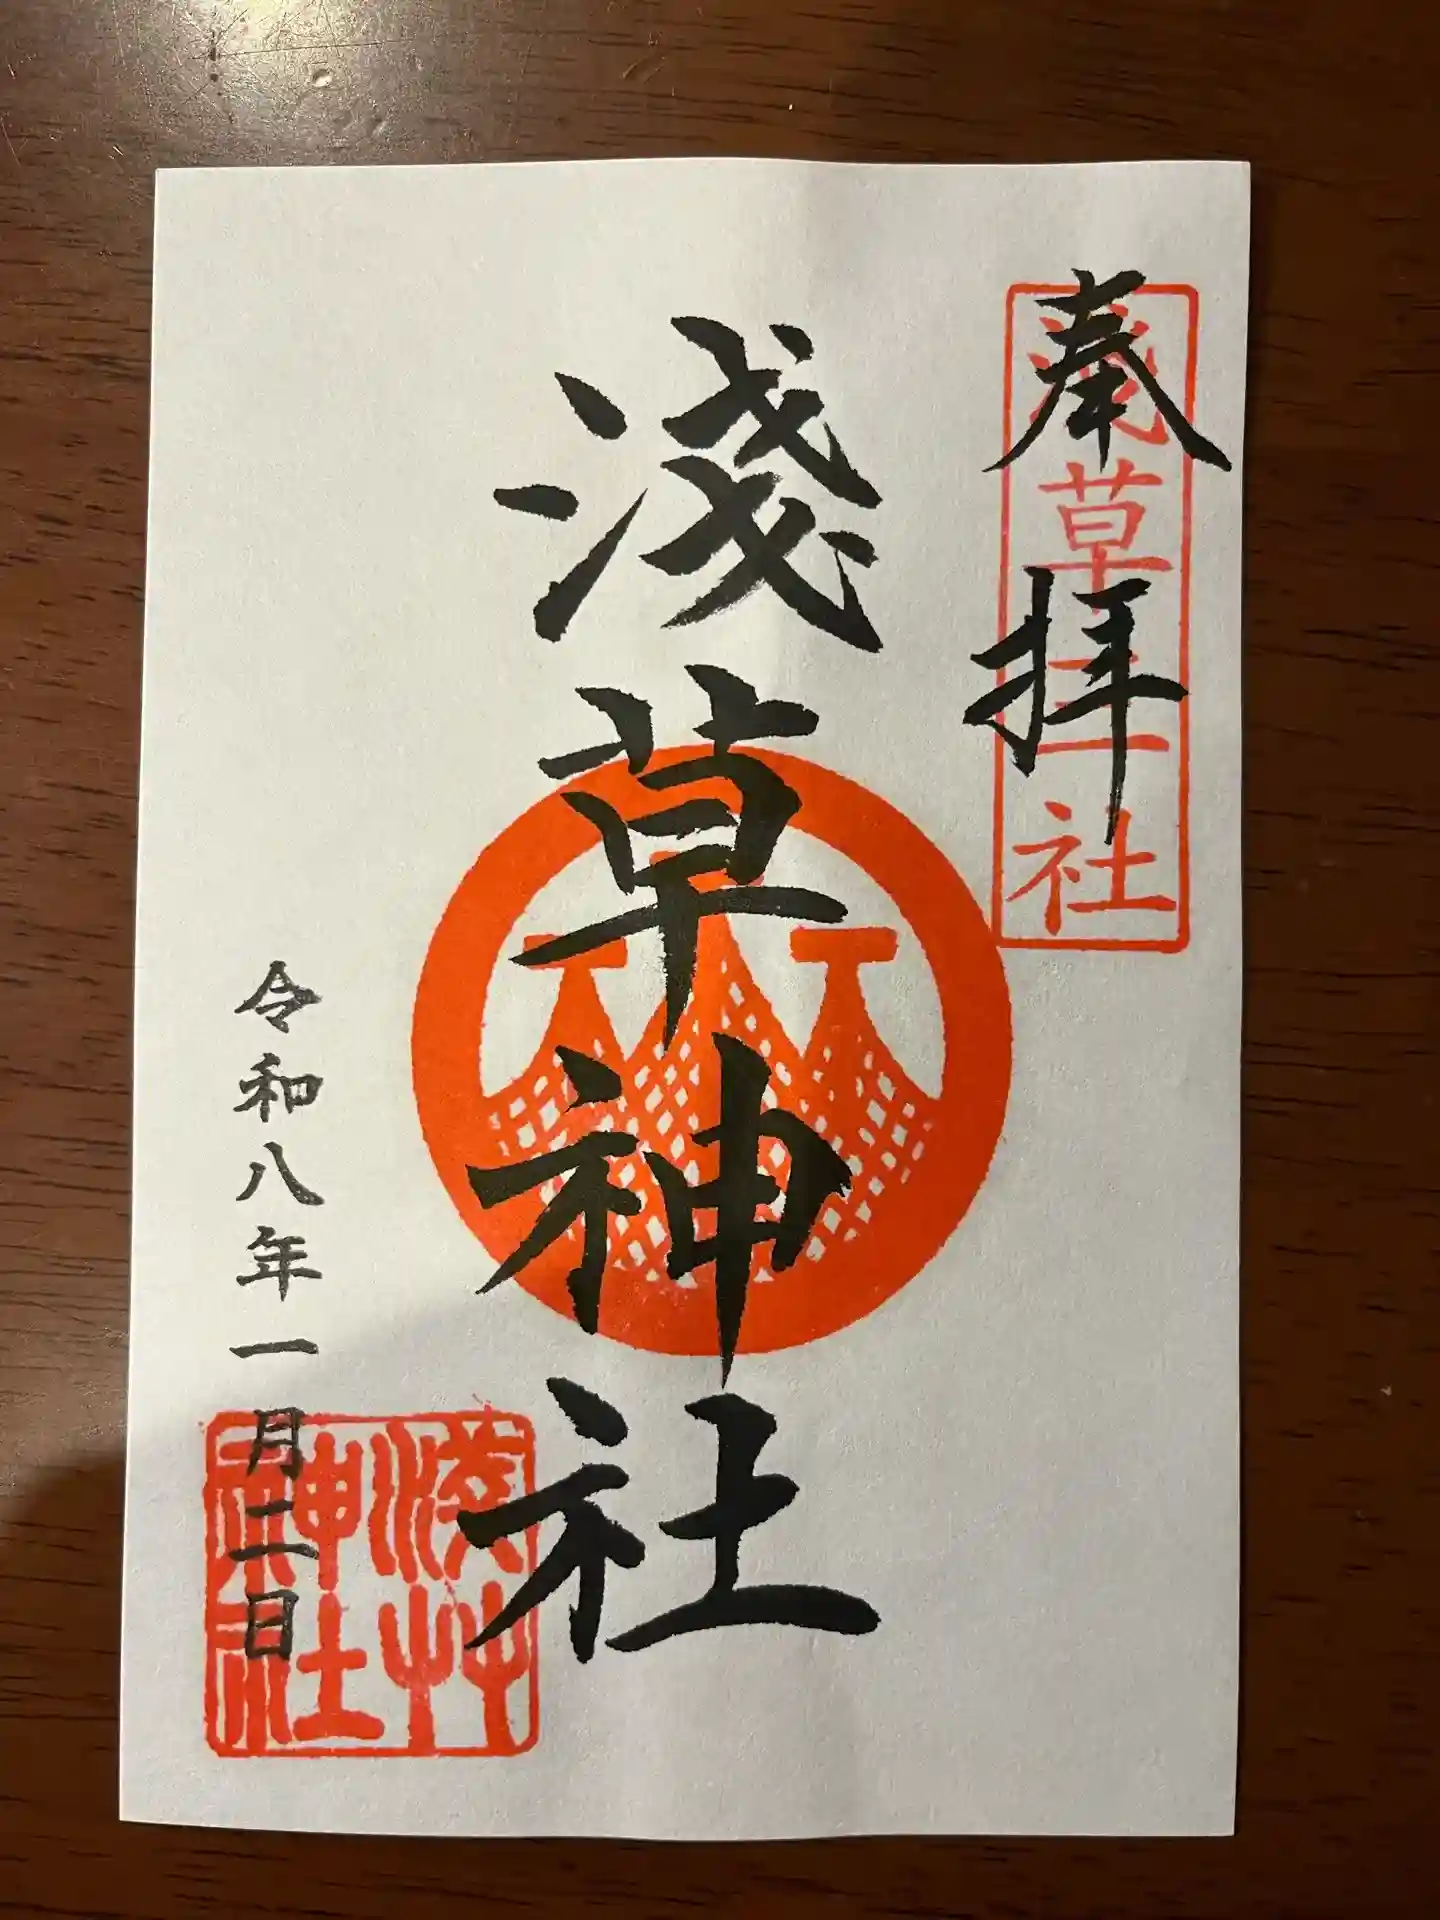 奉拝
浅草三社
淺草神社
令和八年一月二日
淺艸神社